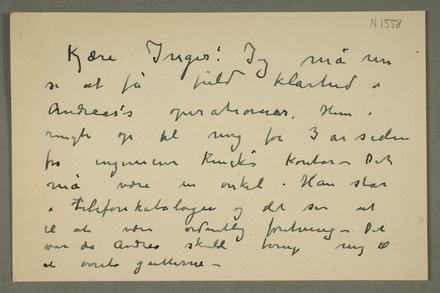 N 1558
Kjære Inger! Jeg må nu
se at få fuld klarhed i
Andreas's operationer. Hun
ringte op til mig for 3 år siden
fra ingeniør kontor – Det
må være en onkel. Han står
i telefonkatalogen og det ser ut
til at være ordentlig forretning – Det
var da Andrea skulde bringe mig til
at